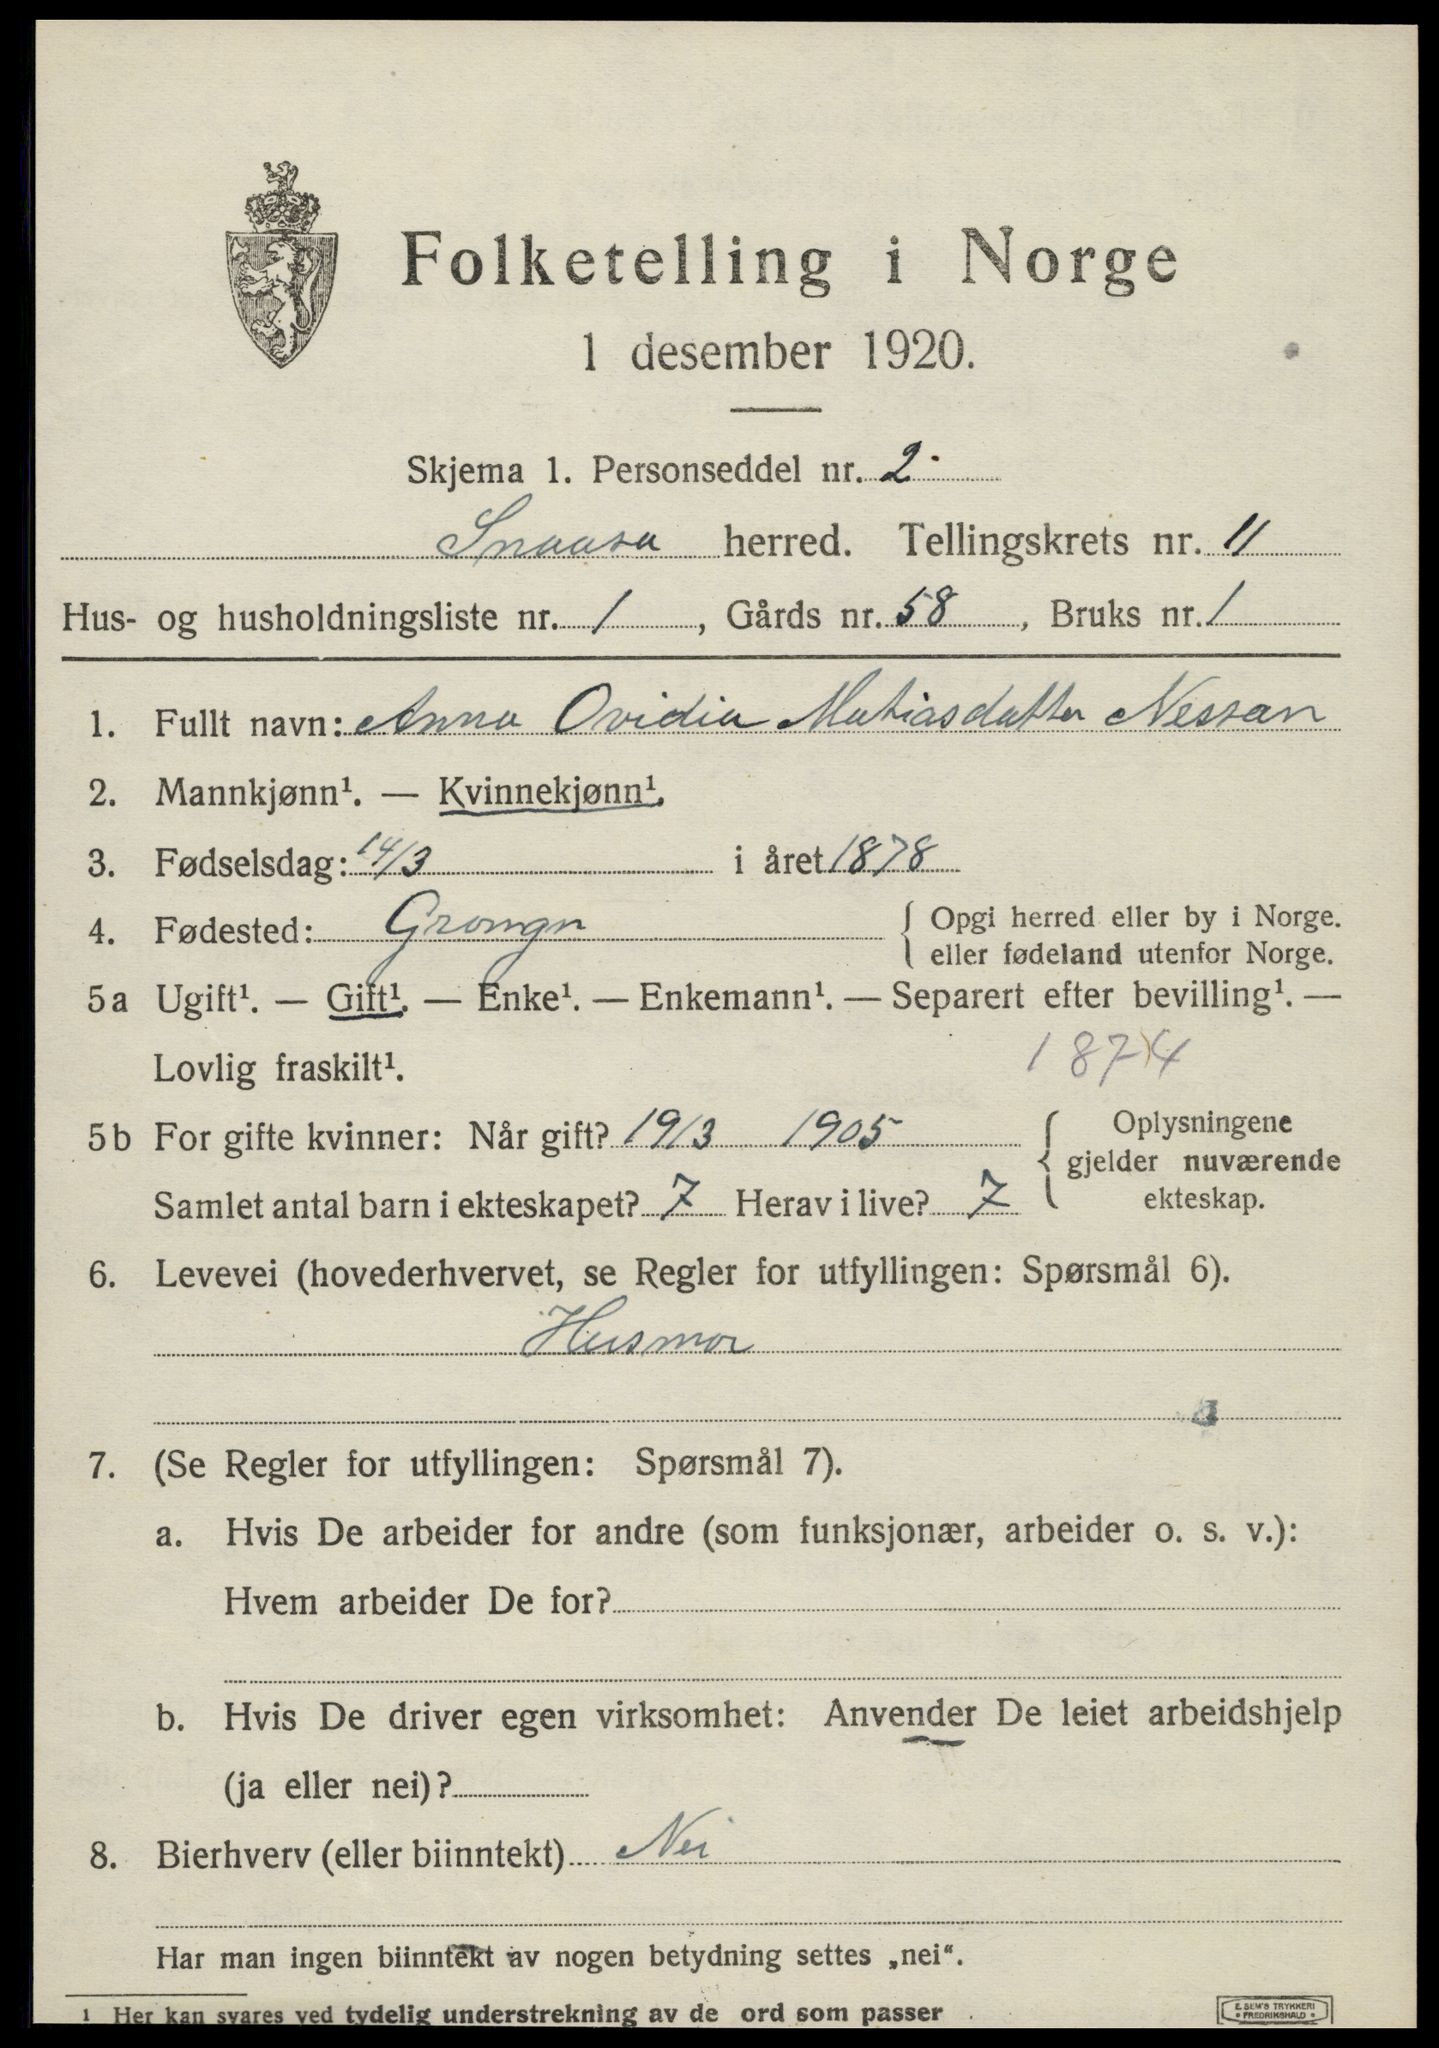 Folketelling i Norge
1 desember 1920.
Skjema 1. Personseddel nr. 2
Snaasa herred. Tellingskrets nr. 11
Hus- og husholdningsliste nr. 1, Gårds nr. 58, Bruks nr. 1
1. Fullt navn: Anna Ovidia Matiasdatter Nessan
2. Mannkjønn¹. — Kvinnekjønn¹.
3. Fødselsdag: 14/3 i året 1878
4. Fødested: Grongn { Opgi herred eller by i Norge.
eller fødeland utenfor Norge.
5a Ugift¹. — Gift¹. — Enke¹. — Enkemann¹. — Separert efter bevilling¹. —
Lovlig fraskilt¹. 1874
5b For gifte kvinner: Når gift? 19/3 1905 { Oplysningene
gjelder nuværende
Samlet antal barn i ekteskapet? 7 Herav i live? 7 ekteskap.
6. Levevei (hovederhvervet, se Regler for utfyllingen: Spørsmål 6).
Husmor
7. (Se Regler for utfyllingen: Spørsmål 7).
a. Hvis De arbeider for andre (som funksjonær, arbeider o. s. v.):
Hvem arbeider De for?
b. Hvis De driver egen virksomhet: Anvender De leiet arbeidshjelp
(ja eller nei)?
8. Bierhverv (eller biinntekt) Nei
Har man ingen biinntekt av nogen betydning settes „nei“.
1 Her kan svares ved tydelig understrekning av de ord som passer
E. SEM'S TRYKKERI
FREDRIKSHALD